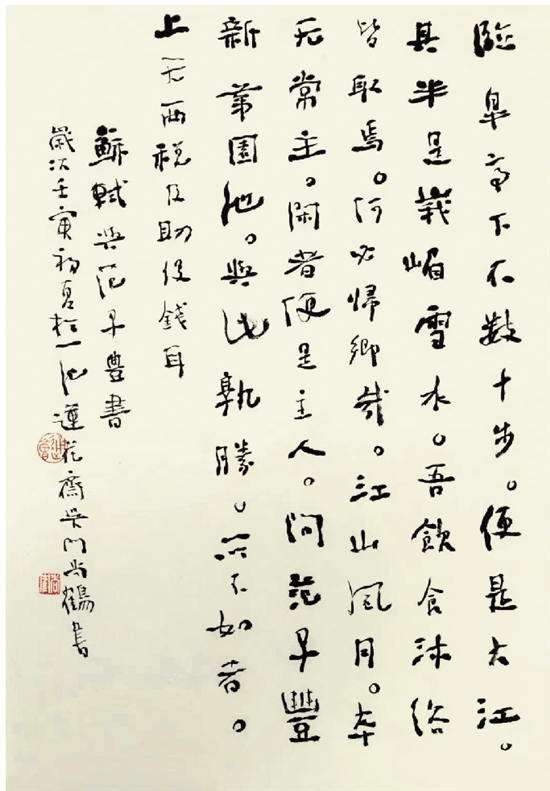 臨皋亭下不數十步。便是大江。
其半是峩嵋雪水。吾飲食沐浴
皆取焉。何必歸鄉哉。江山風月。本
无常主。閑者便是主人。問范子豐
新第園池。與此孰勝。所不如者。
上无兩税及助役錢耳
蘇軾與范子豐書
歲次壬寅初夏於一池蓮花齋吳門尚鶴書